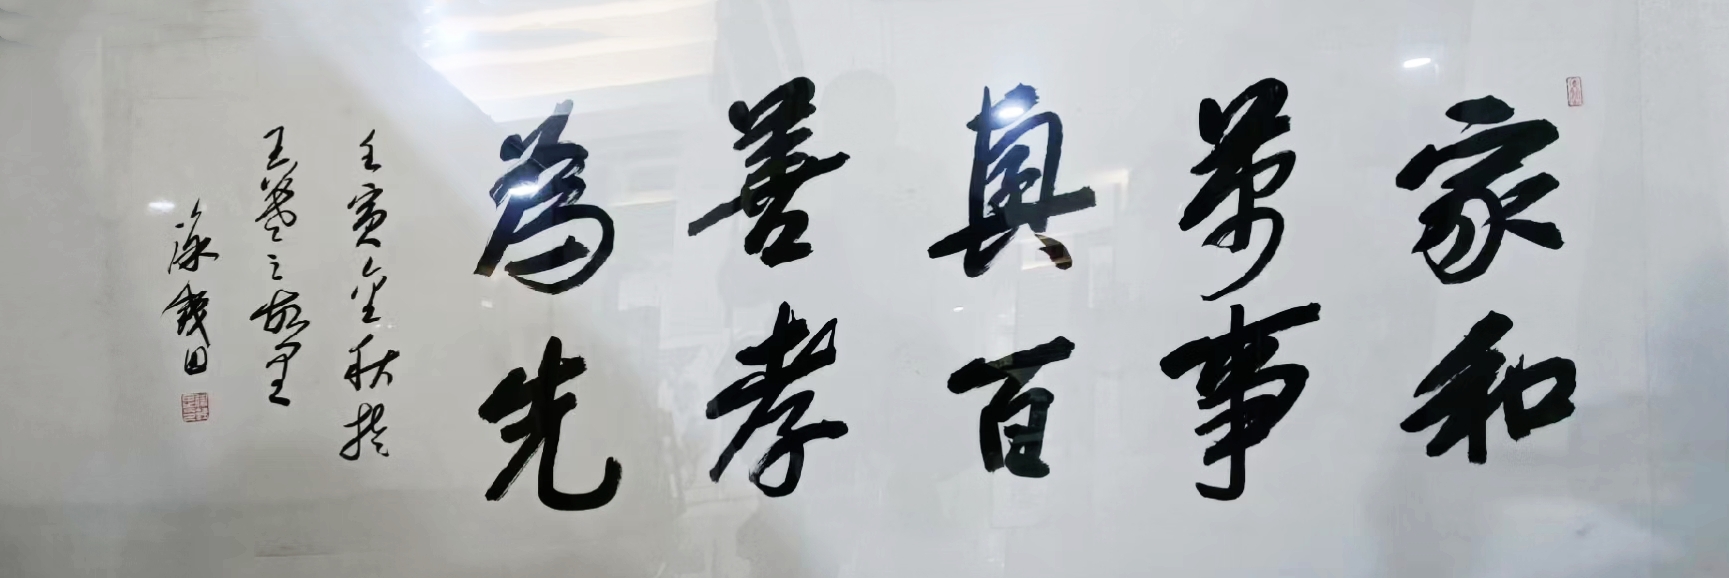 家和
萬事
興百
善孝
為先
壬寅金秋於
王羲之故里